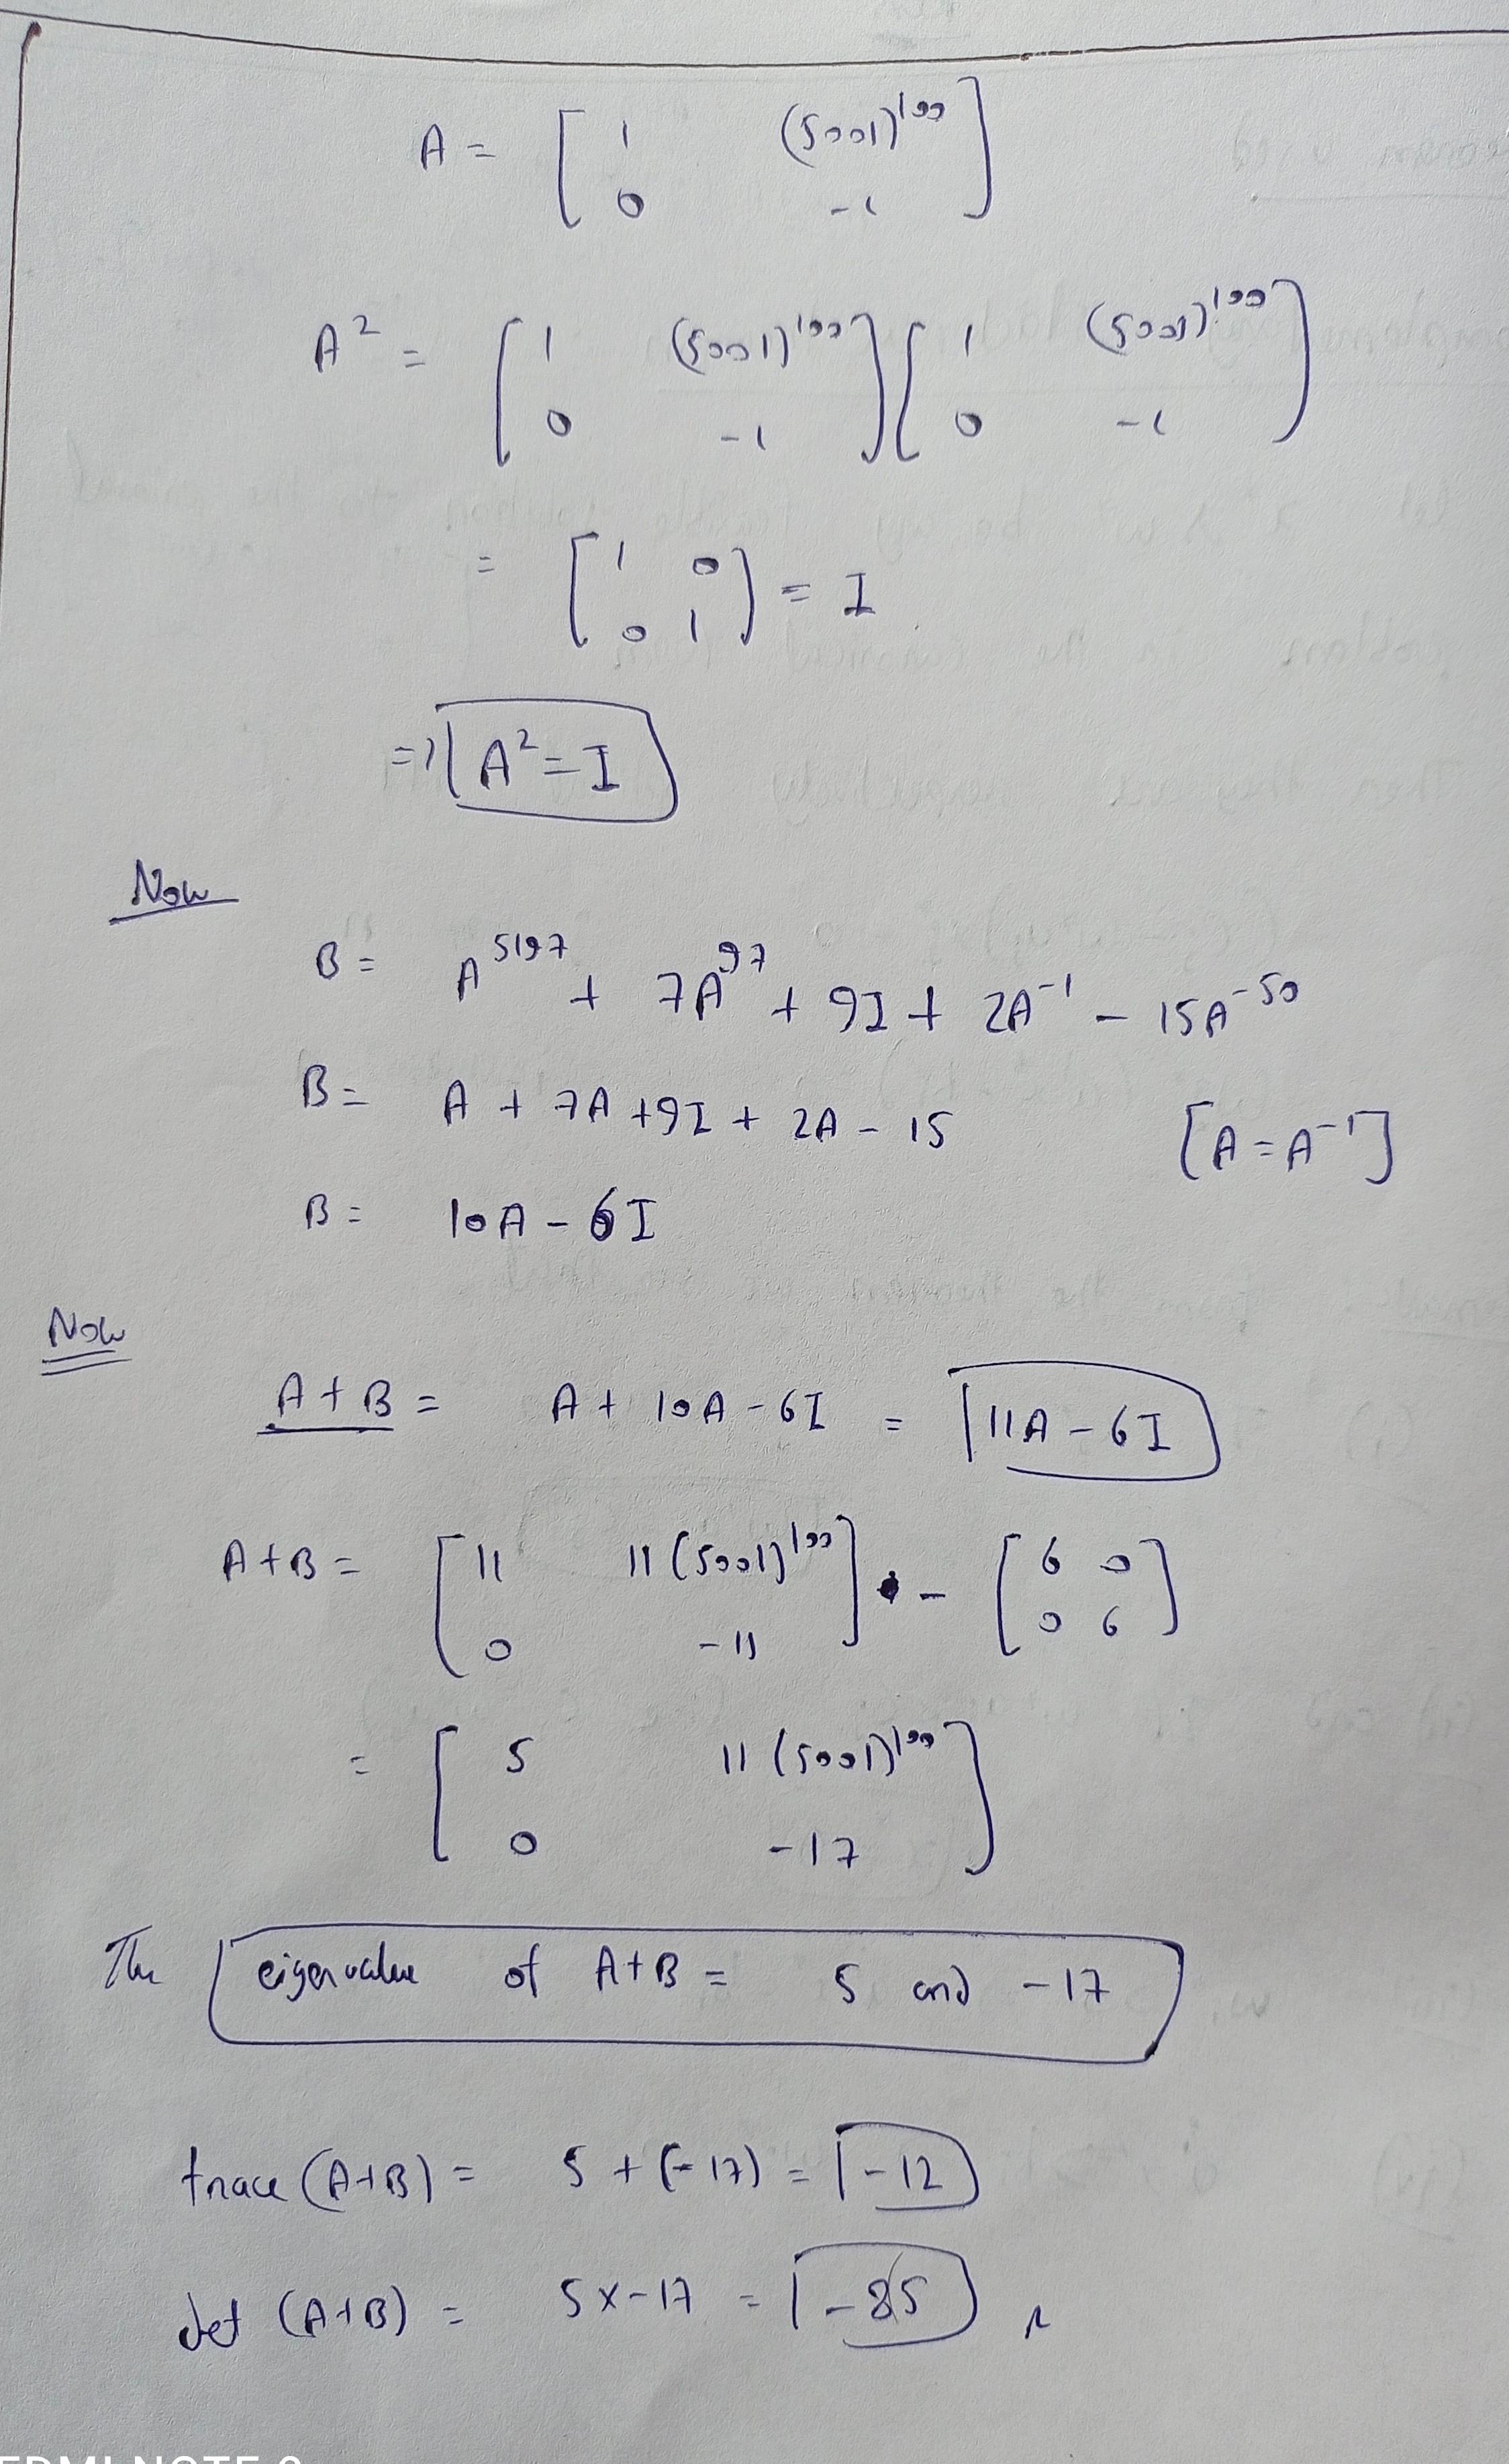 A = [ 1 (5001)^100 ]
0 -1
A^2 = [ 1 (5001)^100 ] [ 1 (5001)^100 ]
0 -1 0 -1
= [ 1 0
0 1 ] = I
=> A^2 = I
Now
B = A^5197 + 7A^97 + 9I + 2A^-1 - 15A^-50
B = A + 7A + 9I + 2A - 15 [A = A^-1]
B = 10A - 6I
Now
A + B = A + 10A - 6I = 11A - 6I
A + B = [ 11 11(5001)^100 ] - [ 6 0 ]
0 -11 0 6
= [ 5 11(5001)^100 ]
0 -17
The eigenvalue of A+B = 5 and -17
trace (A+B) = 5 + (-17) = -12
det (A+B) = 5 x -17 = -85